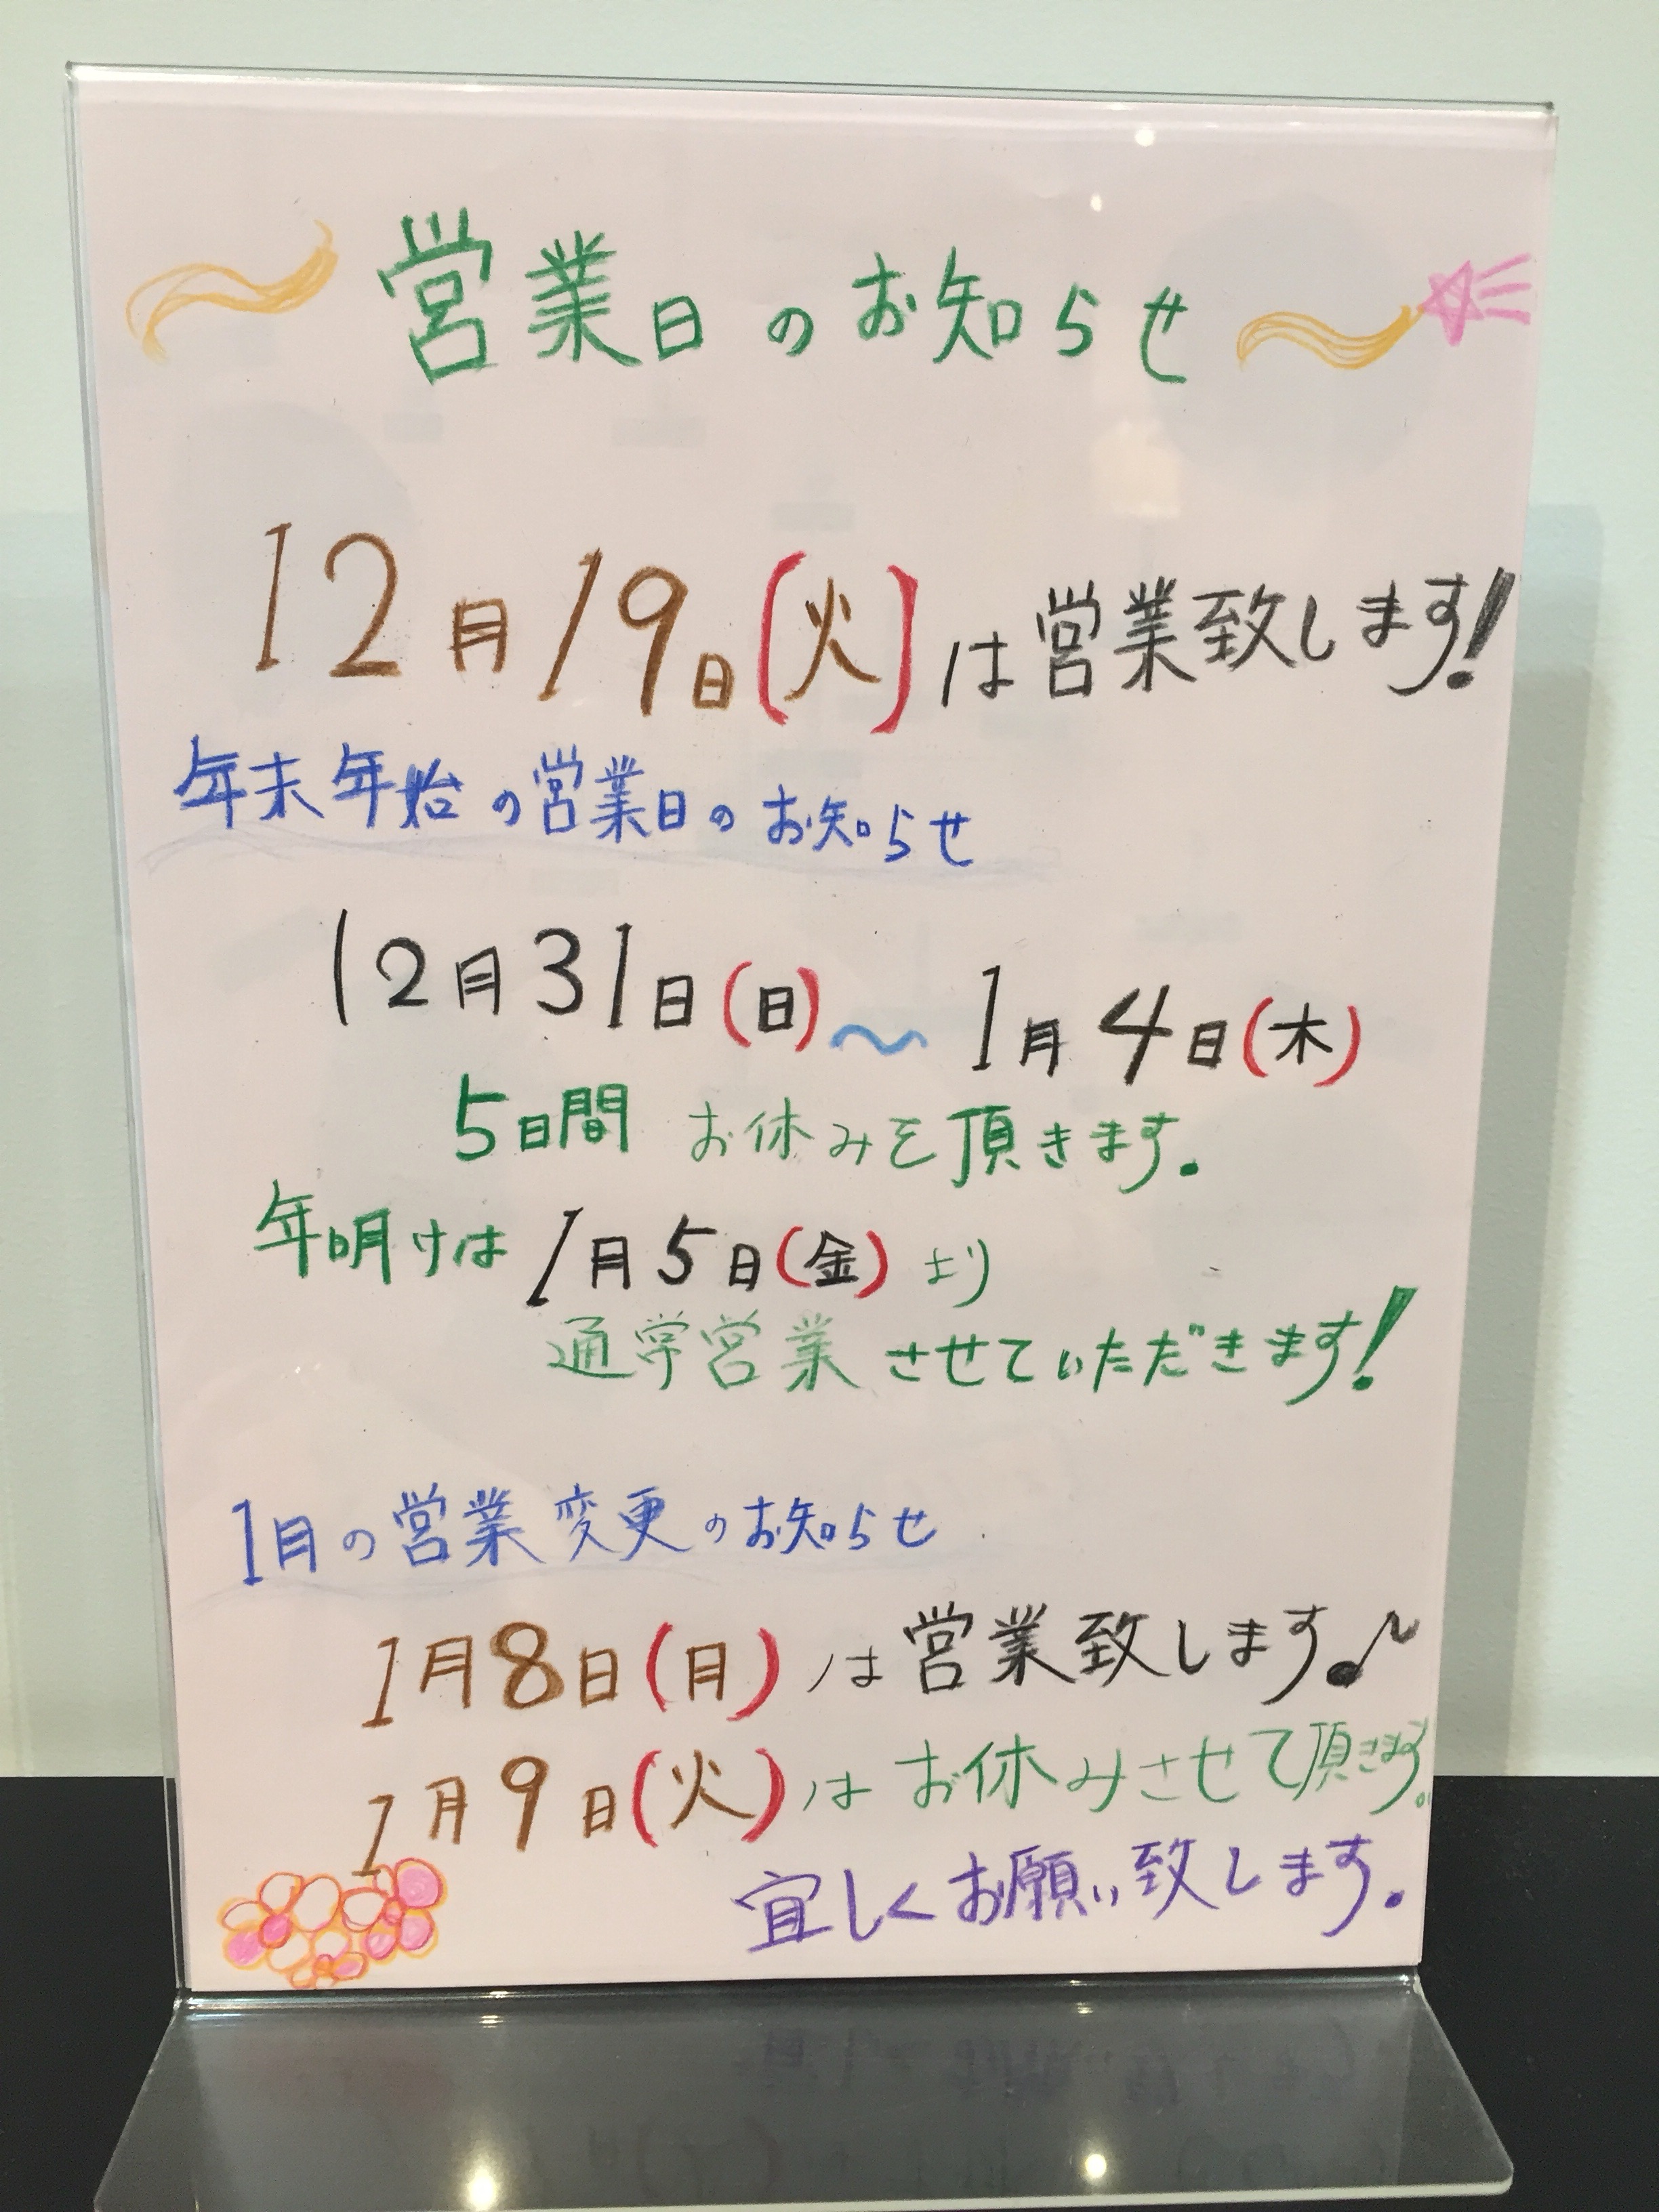 営業日のお知らせ
12月19日(火)は営業致します!
年末年始の営業日のお知らせ
12月31日(日)〜1月4日(木)
5日間 お休みを頂きます.
年明けは1月5日(金)より
通学営業させていただきます!
1月の営業変更のお知らせ
1月8日(月)は営業致します♪
1月9日(火)はお休みさせて頂きます。
宜しくお願い致します.